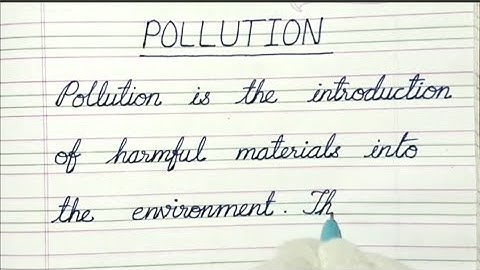 POLLUTION
Pollution is the introduction
of harmful materials into
the environment. Th